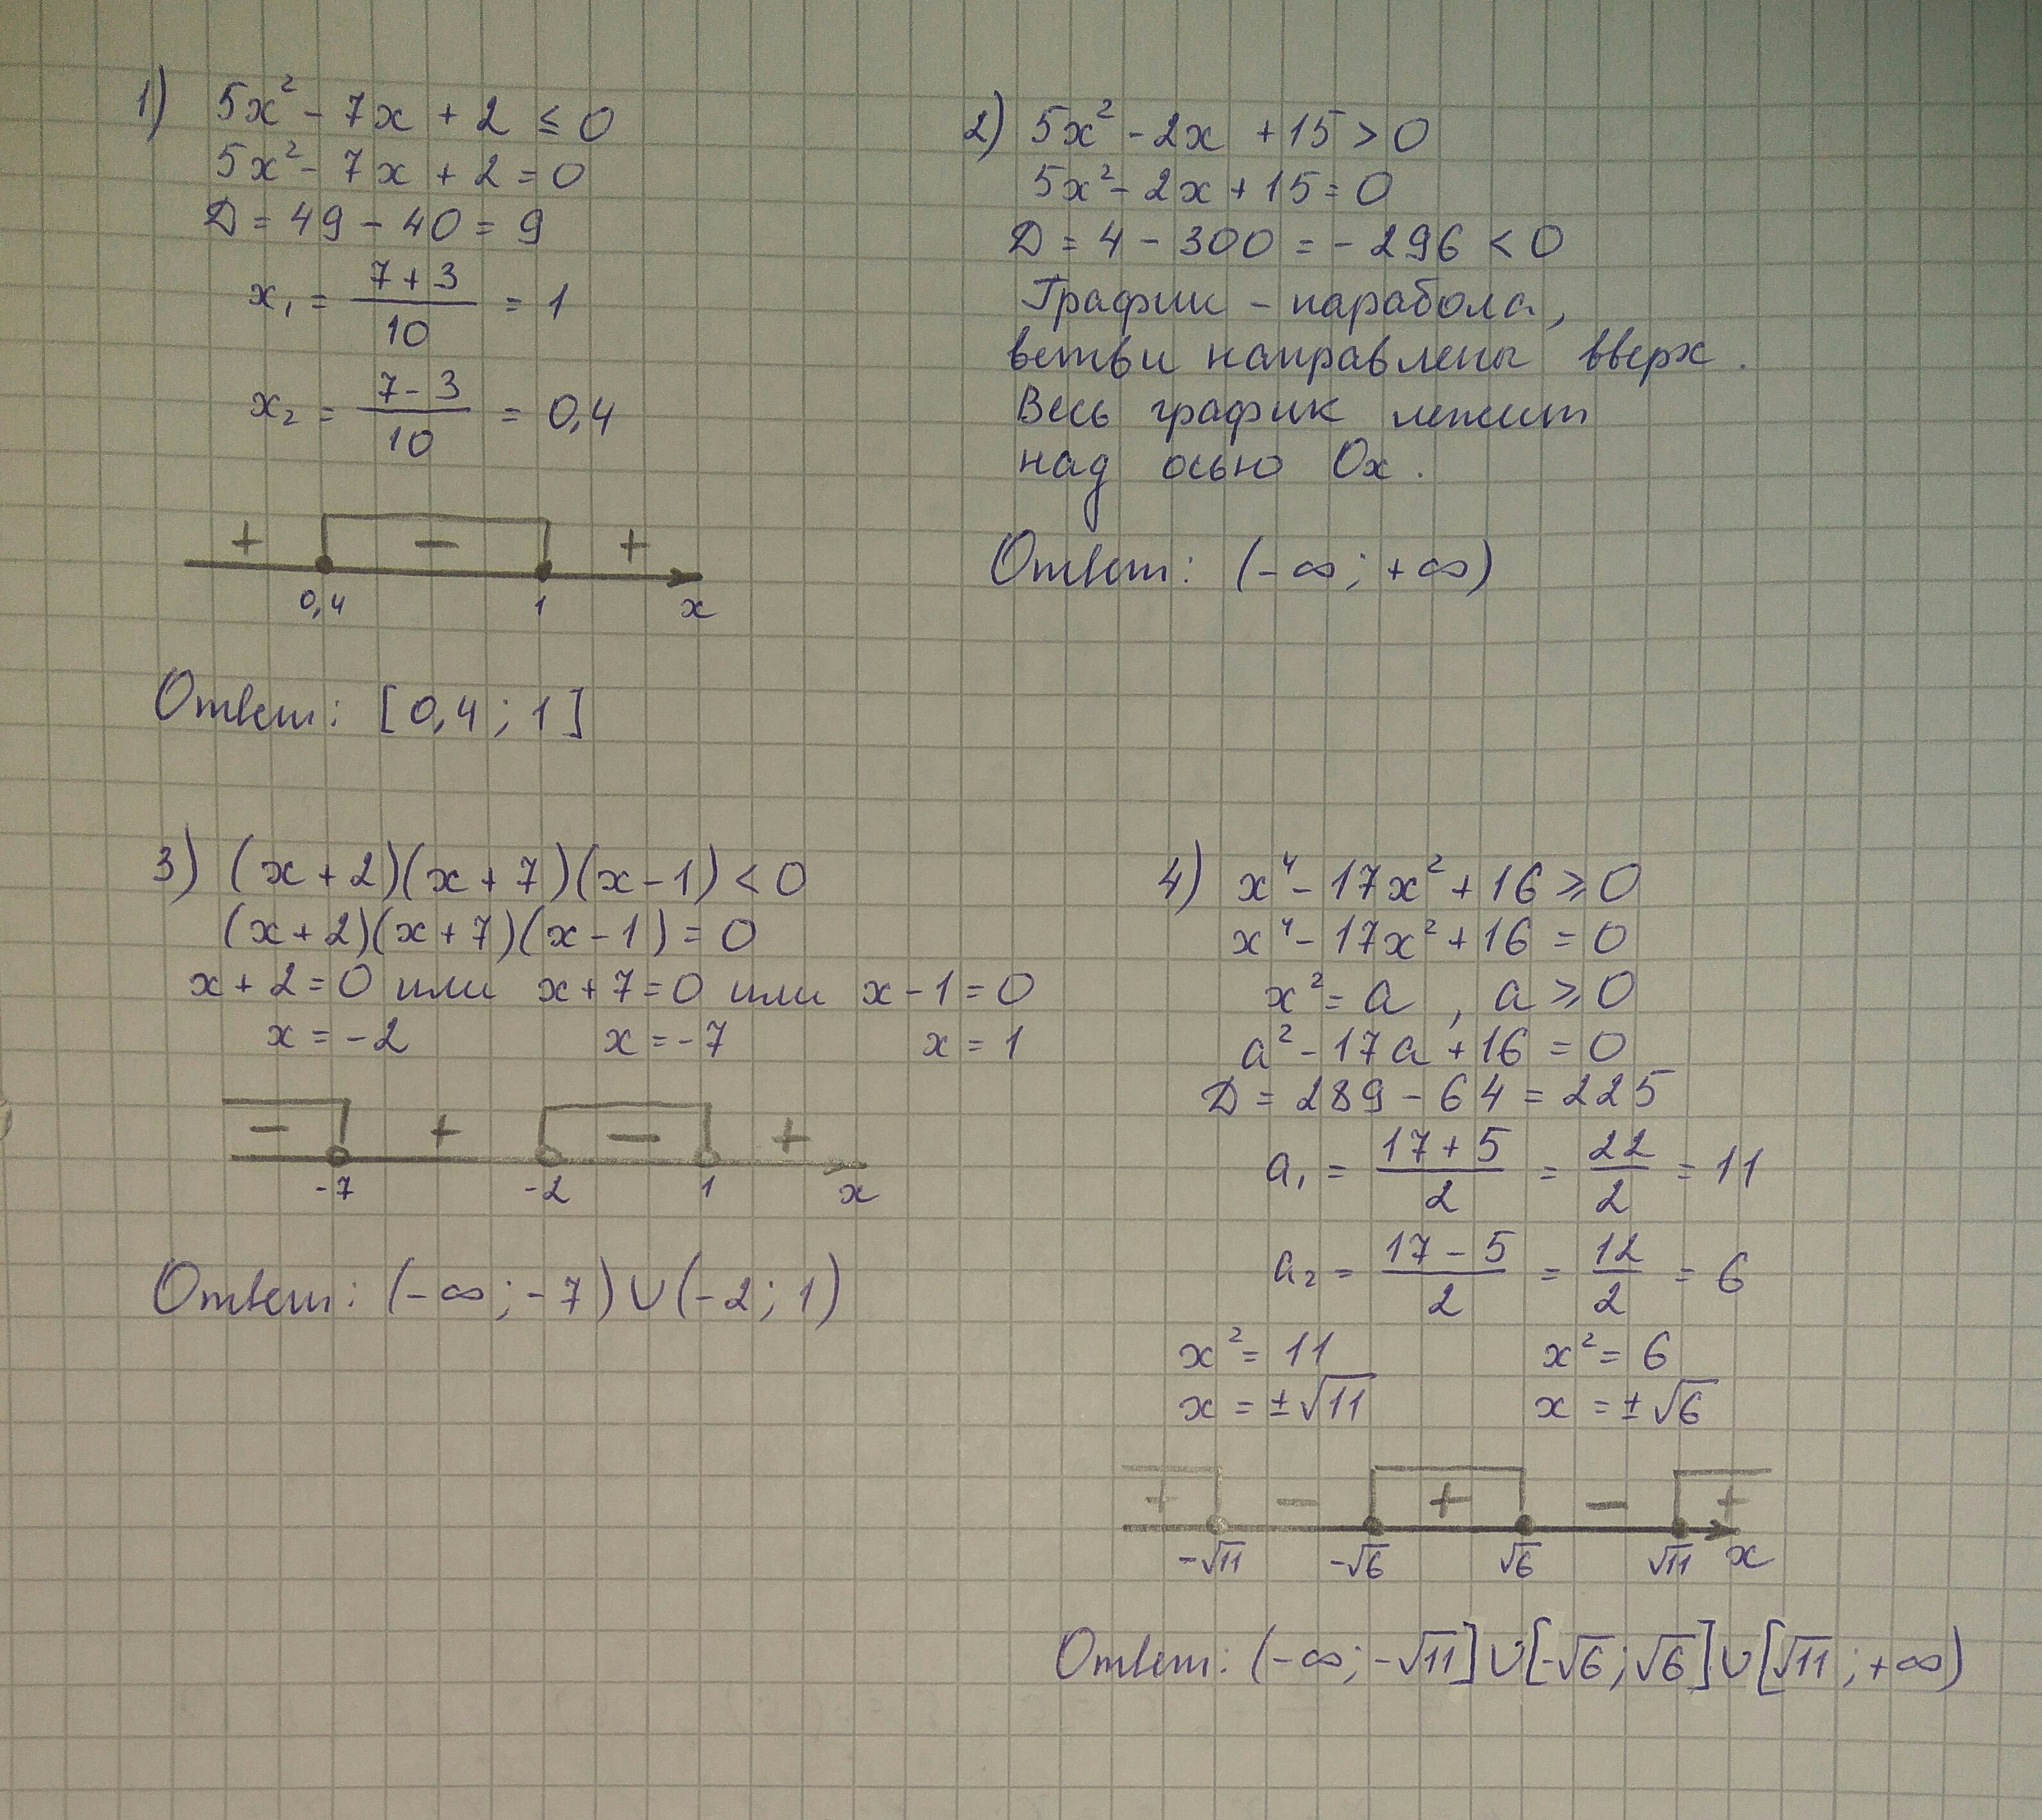 1) 5x² - 7x + 2 ≤ 0
5x² - 7x + 2 = 0
D = 49 - 40 = 9
x₁ = (7 + 3)/10 = 1
x₂ = (7 - 3)/10 = 0,4
+ - +
0,4 1 x
Ответ: [0,4; 1]
2) 5x² - 2x + 15 > 0
5x² - 2x + 15 = 0
D = 4 - 300 = - 296 < 0
График - парабола,
ветви направлены вверх.
Весь график лежит
над осью Ox.
Ответ: (-∞; +∞)
3) (x + 2)(x + 7)(x - 1) < 0
(x + 2)(x + 7)(x - 1) = 0
x + 2 = 0 или x + 7 = 0 или x - 1 = 0
x = -2 x = -7 x = 1
- + - +
-7 -2 1 x
Ответ: (-∞; -7) ∪ (-2; 1)
4) x⁴ - 17x² + 16 ≥ 0
x⁴ - 17x² + 16 = 0
x² = a, a ≥ 0
a² - 17a + 16 = 0
D = 289 - 64 = 225
a₁ = (17 + 5)/2 = 22/2 = 11
a₂ = (17 - 5)/2 = 12/2 = 6
x² = 11 x² = 6
x = ±√11 x = ±√6
+ - + - +
-√11 -√6 √6 √11 x
Ответ: (-∞; -√11] ∪ [-√6; √6] ∪ [√11; +∞)